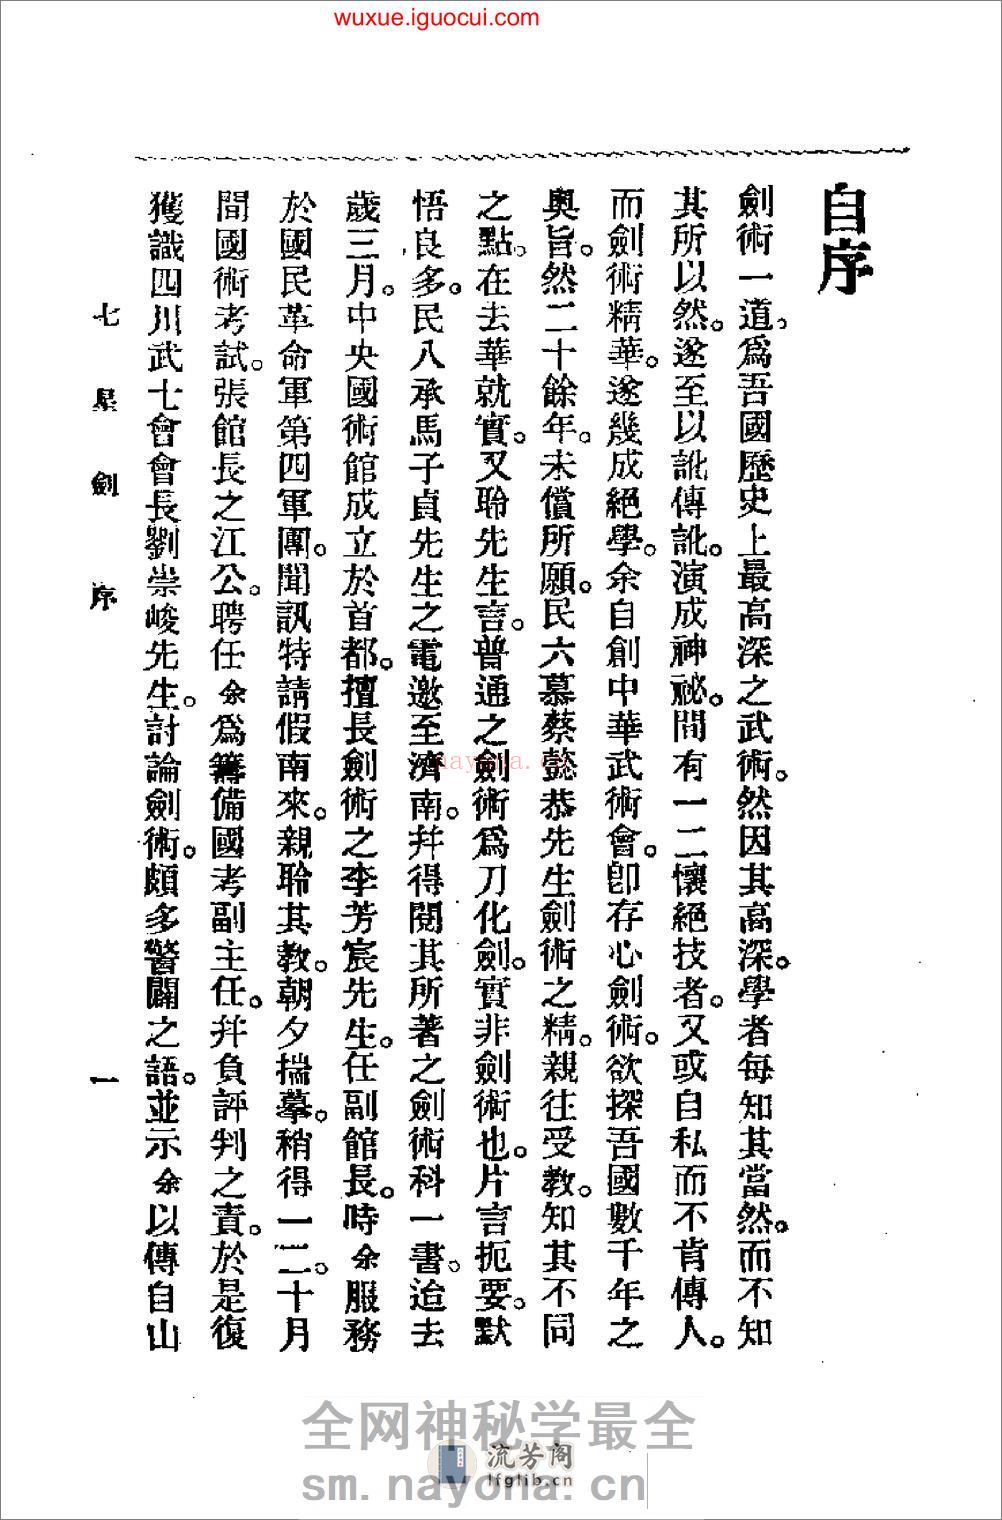 wuxue.iguocui.com
自序
劍術一道。爲吾國歷史上最高深之武術。然因其高深。學者每知其當然。而不知
其所以然。遂至以訛傳訛。演成神祕。間有一二懷絕技者。又或自私而不肯傳人。
而劍術精華。遂幾成絕學。余自創中華武術會。卽存心劍術。欲探吾國數千年之
奧旨。然二十餘年。未償所願。民六慕蔡懿恭先生劍術之精。親往受教。知其不同
之點。在去華就實。又聆先生言。普通之劍術爲刀化劍。實非劍術也。片言扼要。默
悟良多。民八承馬子貞先生之電邀至濟南。幷得閱其所著之劍術科一書。迨去
歲三月。中央國術館成立於首都。擅長劍術之李芳宸先生。任副館長。時余服務
於國民革命軍第四軍團。聞訊特請假南來。親聆其教。朝夕揣摹。稍得一二。十月
間國術考試。張館長之江公。聘任余爲籌備國考副主任。幷負評判之責。於是復
獲識四川武士會會長劉崇峻先生。討論劍術。頗多警闢之語。並示余以傳自山
七星劍 序 一
nayona.cn
全网神秘学最全
流芳阁
lfglib.cn
sm.nayona.cn